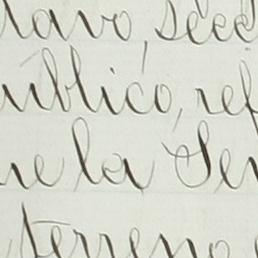 lavo, seec
ublico, ref
ue la Sen
terreno